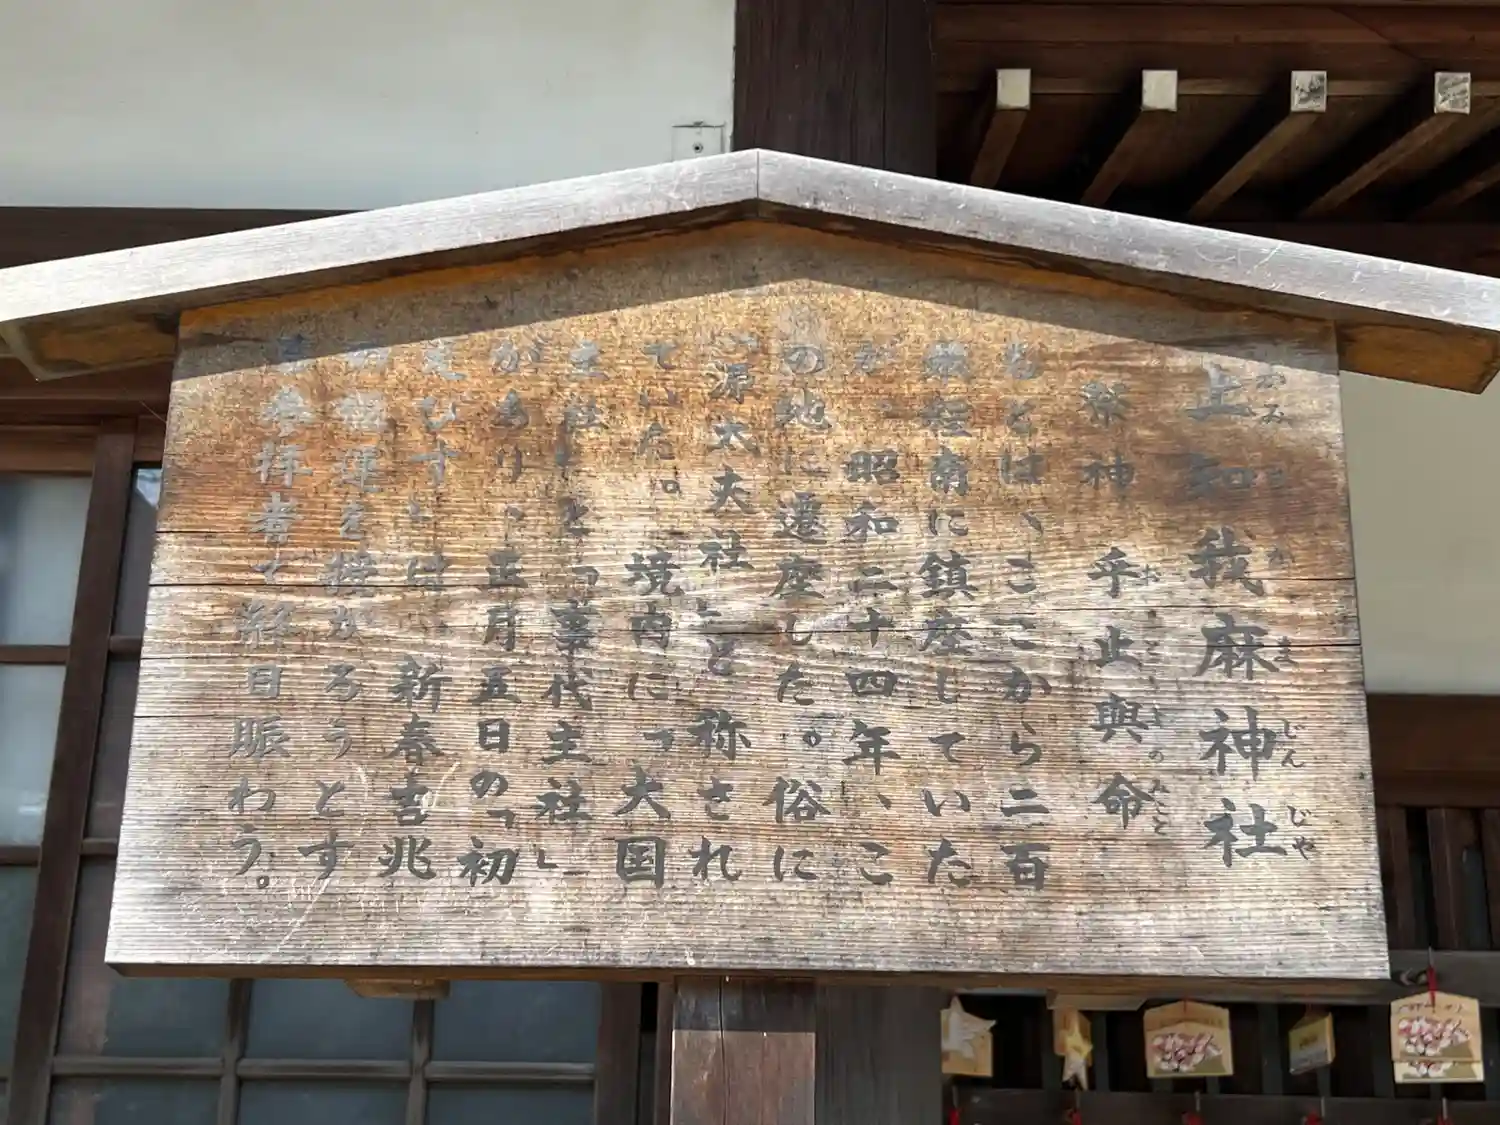 上知我麻神社
かみちかまじんじや
祭神　乎止與命
おとよのみこと
もとは、ここから二百
米程南に鎮座していた
が、昭和二十四年、こ
の地に遷座した。俗に
「源太夫社」と称され
ていた。境内に「大国
主社」と「事代主社」
があり、正月五日の「初
えびす」は、新春吉兆
の福運を授かろうとす
る参拝者で終日賑わう。